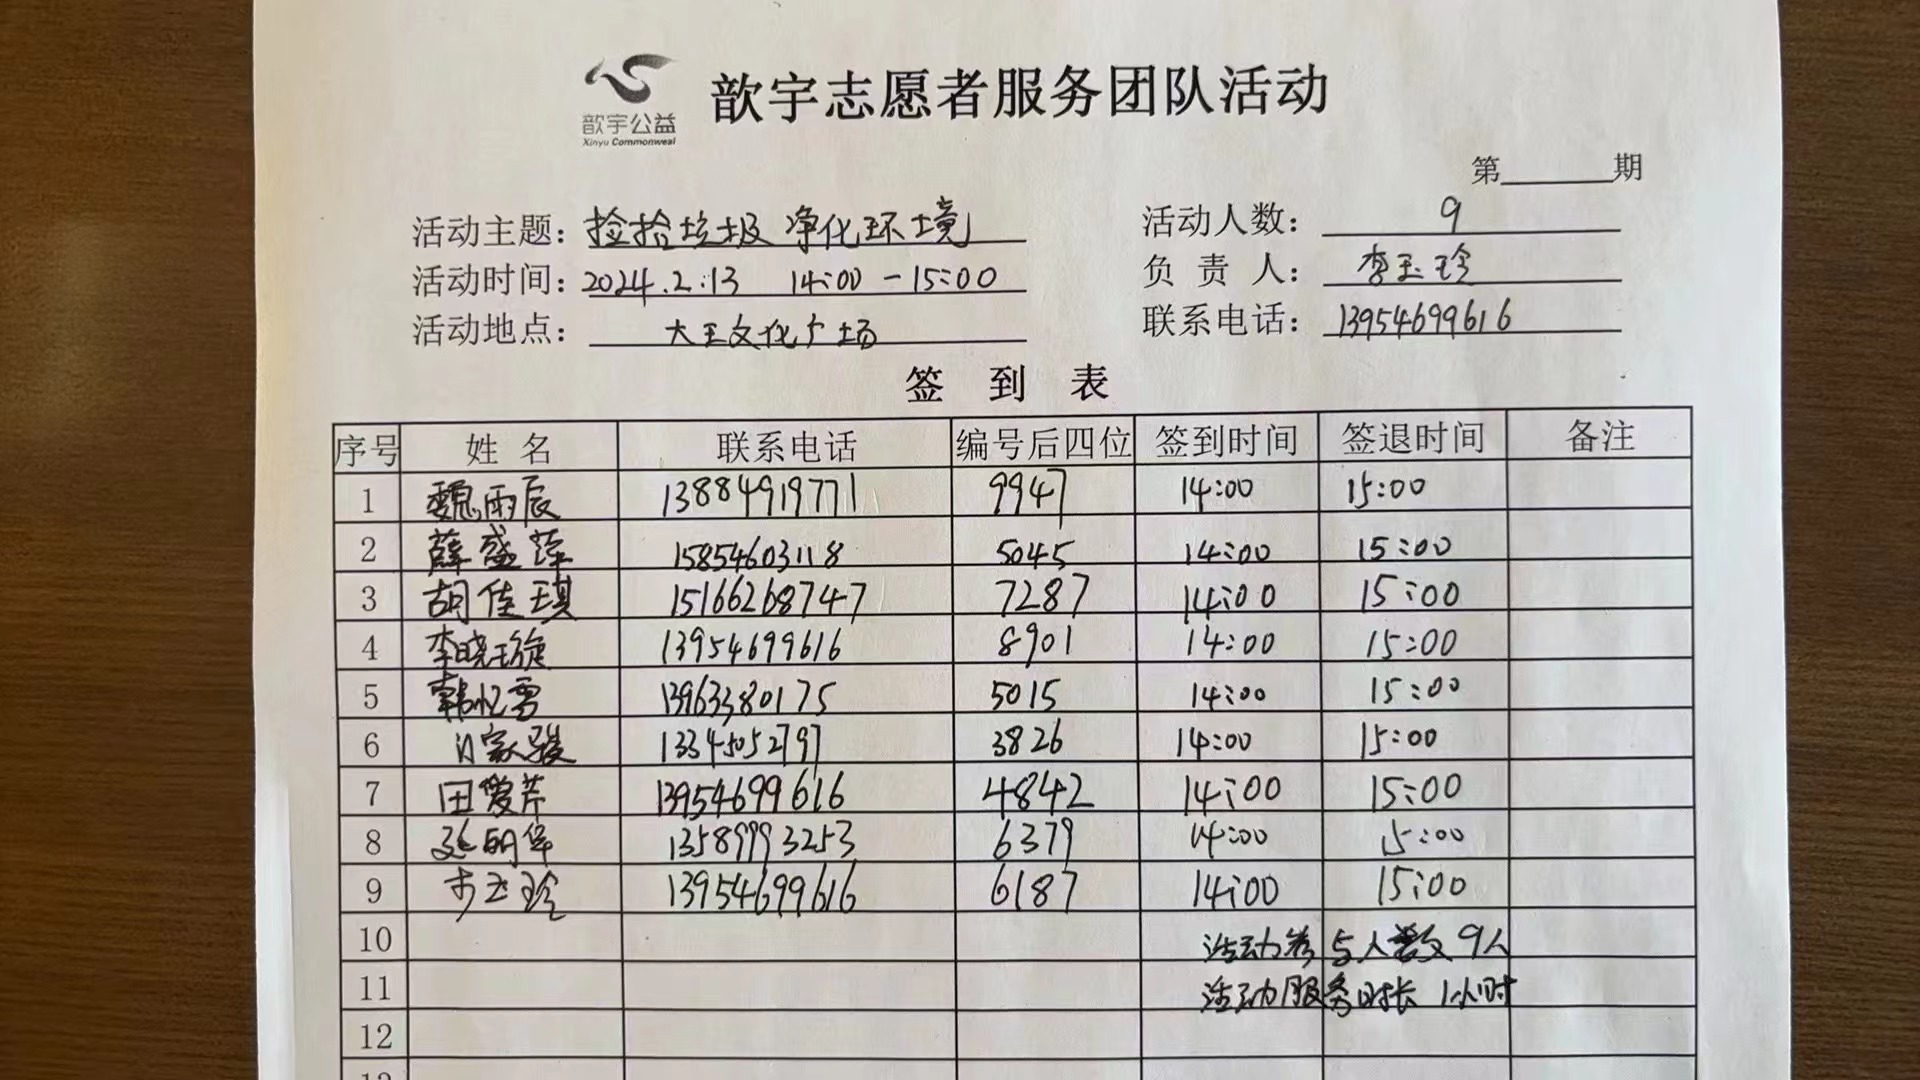 歆宇公益
Xinyu Commonweal
歆宇志愿者服务团队活动
第______期
活动主题：捡拾垃圾 净化环境
活动人数：9
活动时间：2024.2.13 14:00-15:00
负责人：李玉玲
活动地点：大王文化广场
联系电话：13954699616
签到表
序号 姓名 联系电话 编号后四位 签到时间 签退时间 备注
1 魏雨辰 13884919771 9947 14:00 15:00
2 薛盛萍 15854603118 5045 14:00 15:00
3 胡佳琪 15166268747 7287 14:00 15:00
4 李晓璇 13954699616 8901 14:00 15:00
5 韩忆雪 13963380175 5015 14:00 15:00
6 家骏 13345052797 3826 14:00 15:00
7 田爱芹 13954699616 4842 14:00 15:00
8 延明华 13589993253 6379 14:00 15:00
9 李玉玲 13954699616 6187 14:00 15:00
10 活动参与人数9人
11 活动服务时长1小时
12
13